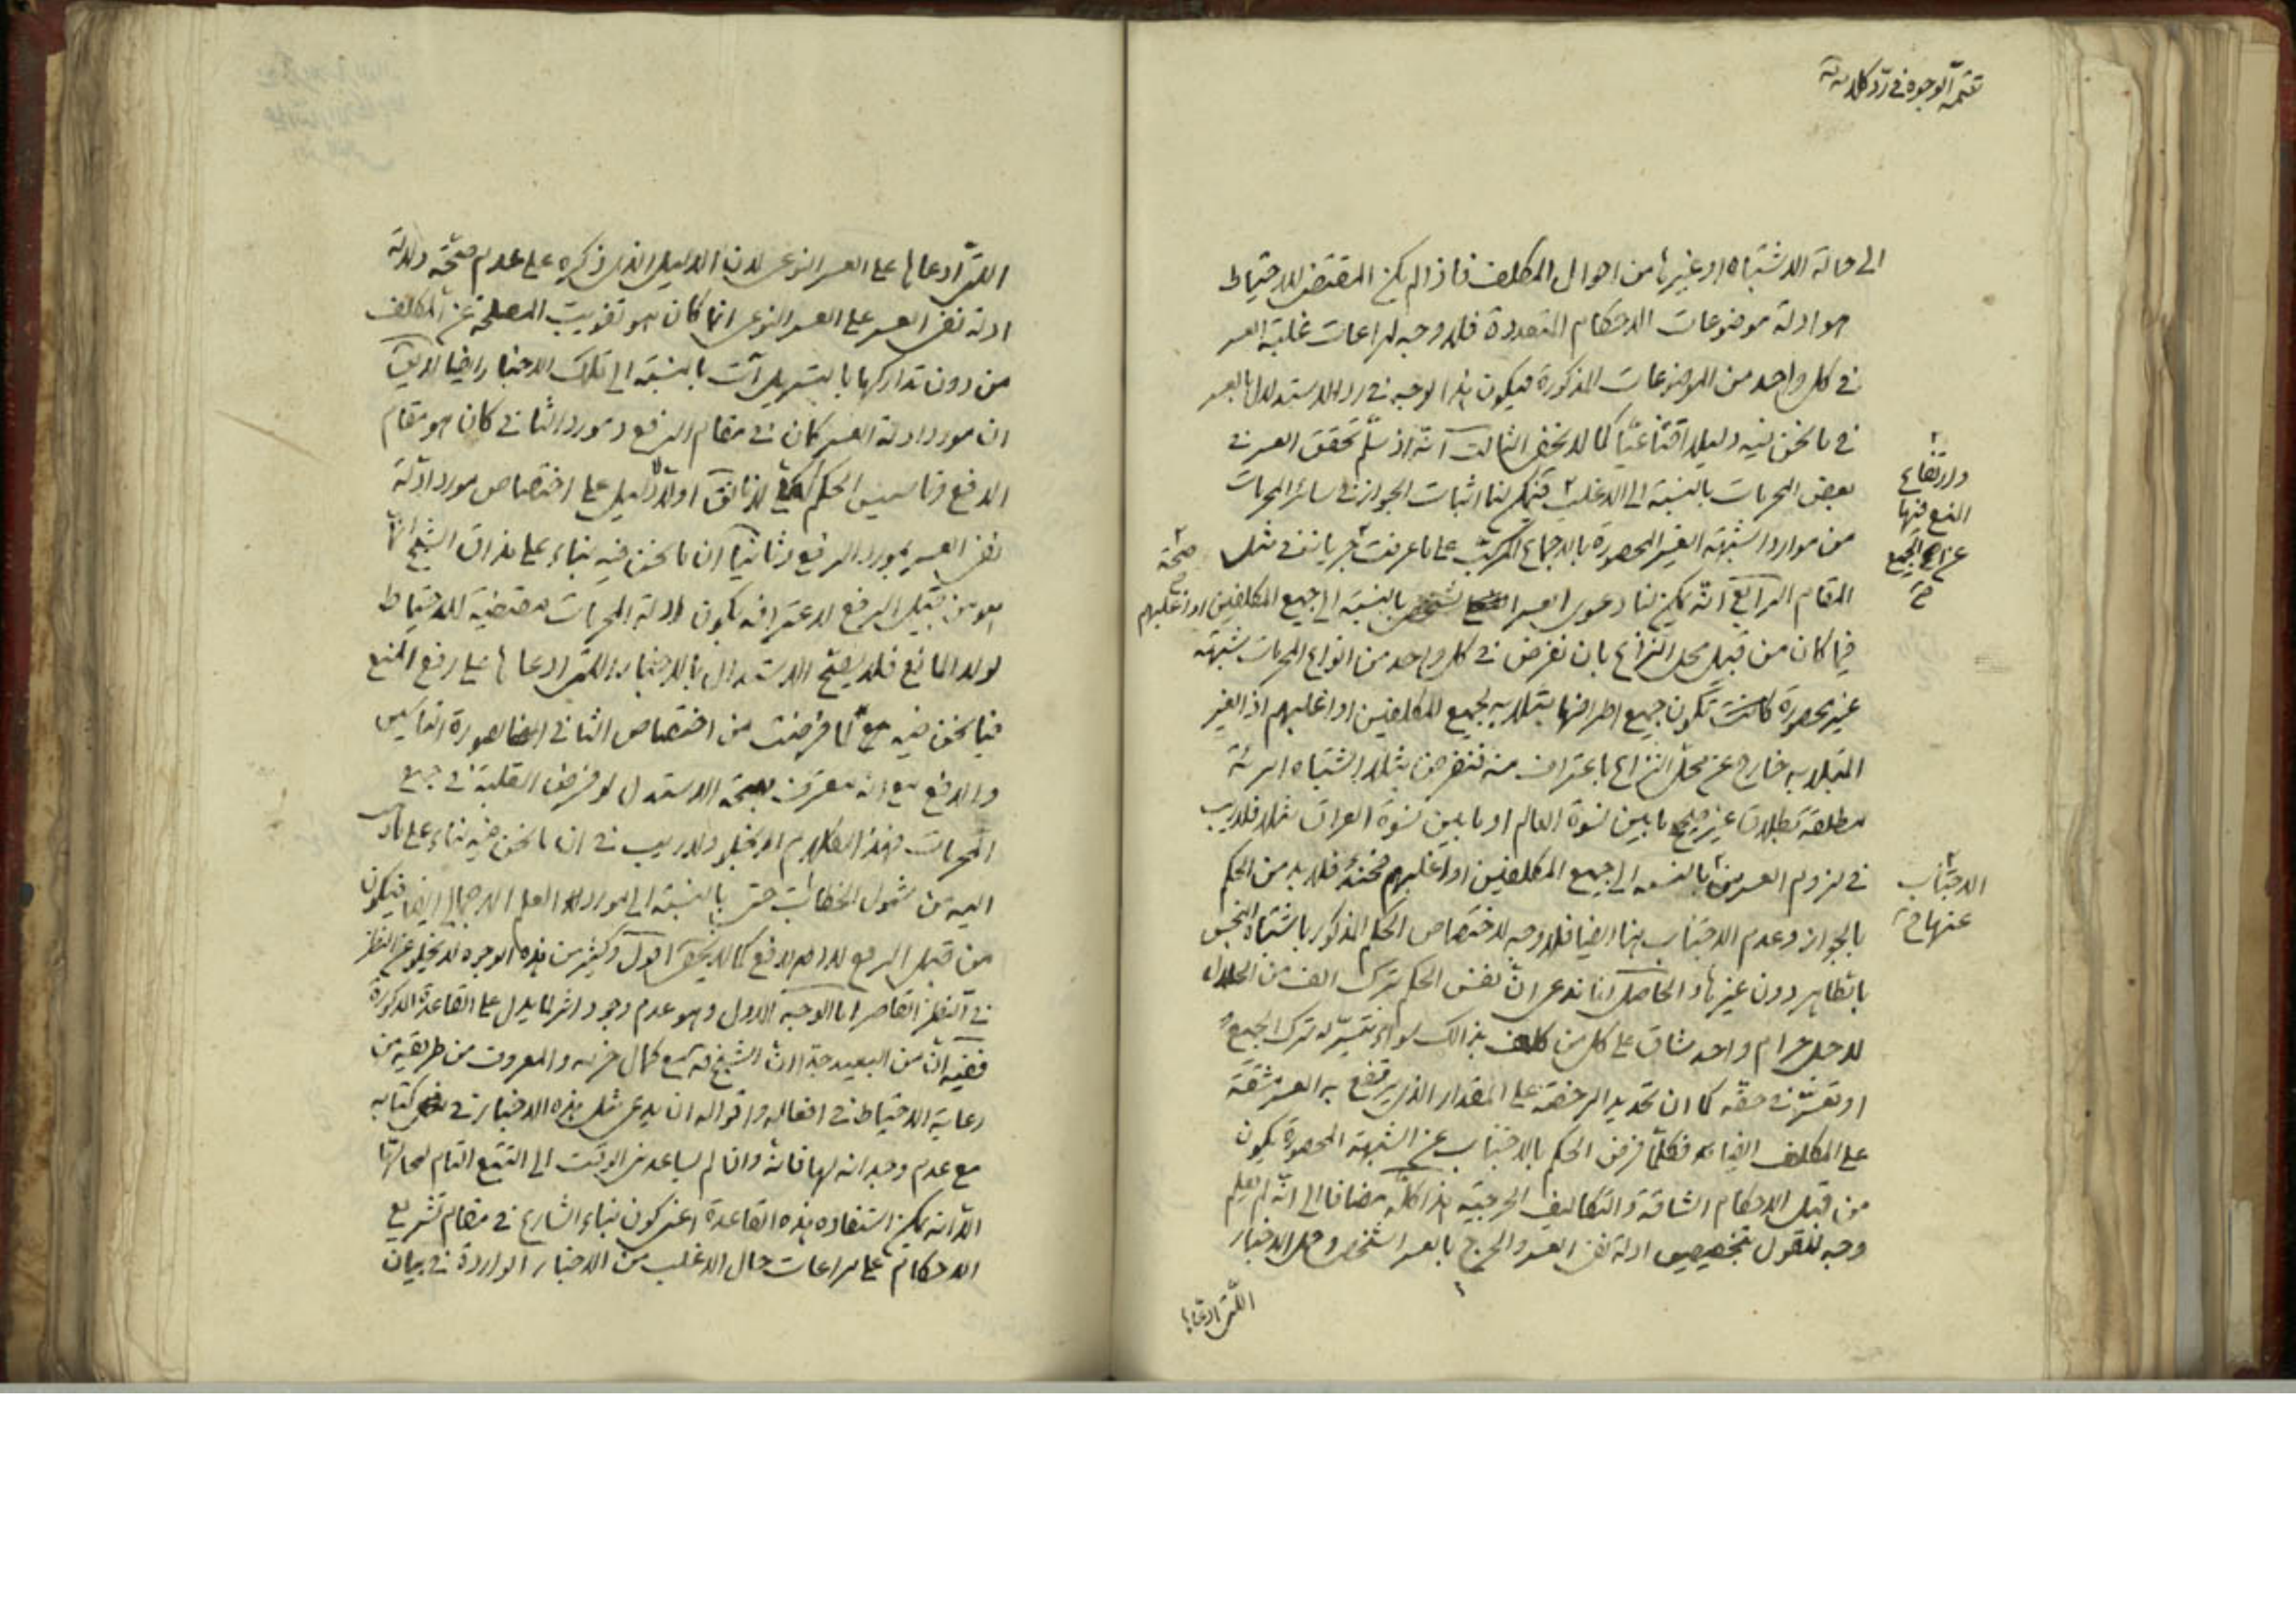 تتمة الوجوه في رد كلامه
الى حالة الاشتباه او غيرها من احوال المكلف فاذا لم يكن المقتضى للاحتياط
هو ادلة موضوعات الاحكام المتعددة فلا وجه لمراعات غلبة العسر
في كل واحد من الموضوعات المذكورة فيكون هذا الوجه في رد الاستدلال بالعسر
في ما نحن فيه دليلا اقناعيا كما لا يخفى الثالث انه اذ سلم تحقق العسر في
بعض المحرمات بالنسبة الى الاغلب فيمكن لنا اثبات الجواز في سائر المحرمات
وارتفاع
المنع فيها
عن الجميع
ح
من موارد الشبهة الغير المحصورة بالاجماع المركب على ما عرفت جريانه في مثل
صحة
المقام الرابع انه يمكن لنا دعوى العسر الشخصي بالنسبة الى جميع المكلفين او اغلبهم
فيما كان من قبيل محل النزاع بان نفرض في كل واحد من انواع المحرمات شبهة
غير محصورة كانت تكون جميع اطرافها مبتلا به لجميع المكلفين او اغلبهم اذ الغير
المبتلا به خارج عن محل النزاع باعتراف منه فنفرض مثلا اشتباه امرئة
مطلقة بطلاق غير صحيح ما بين نسوة العالم او ما بين نسوة العراق مثلا فلا ريب
في لزوم العسر بالنسبة الى جميع المكلفين او اغلبهم فحينئذ فلا بد من الحكم
الاجتناب
عنها ح
بالجواز وعدم الاجتناب هنا ايضا فلا وجه لاختصاص الحكم المذكور باشتباه النجس
بالطاهر دون غيرها والحاصل انا ندعى ان نفس الحكم بترك الف من الحلال
لاجل حرام واحد شاق على كل من كلف بذالك سواء تيسر له ترك الجميع
او تعسر في حقه كما ان تحديد الرخصة على المقدار الذي يرتفع به العسر مشقة
على المكلف ايضا فكلما فرض الحكم بالاجتناب عن الشبهة المحصورة يكون
من قبيل الاحكام الشاقة والتكاليف الحرجية هذا كله مضافا الى انه لم يعلم
وجه للقول بتخصيص ادلة نفى العسر والحرج بالعسر الشخصي وحمل الاخبار
اللتى ادعاها
اللتى ادعاها على العسر النوعى لان الدليل الذى ذكره على عدم صحة دلالة
ادلة نفى العسر على العسر النوعى انما كان هو تفويت المصلحة عن المكلف
من دون تداركها بالتسهيل آت بالنسبة الى تلك الاخبار ايضا لا يق
ان مورد ادلة العسر كان في مقام الرفع ومورد الثانى كان هو مقام
الدفع وتاسيس الحكم لانا نقول اولا لا دليل على اختصاص مورد ادلة
نفى العسر بمورد الرفع وثانيا ان ما نحن فيه بناء على مذاق الشيخ انما
هو من قبيل الرفع لاعترافه بكون ادلة المحرمات مقتضية للاحتياط
لولا المانع فلا يصح الاستدلال بالاخبار اللتى ادعاها على رفع المنع
فيما نحن فيه مع ما فرضت من اختصاص الثانى بصورة التاسيس
والدفع مع انه معترف بصحة الاستدلال لو فرض الغلبة في جميع
المحرمات فهذا الكلام لا يخلو ولا ريب في ان ما نحن فيه بناء على ما ذهب
اليه من شمول الخطابات حتى بالنسبة الى موارد العلم الاجمالى ايضا فيكون
من قبيل الرفع لا الدفع كما لا يخفى اقول وكثير من هذه الوجوه لا يخلو عن النظر
في النظر القاصر اما الوجه الاول وهو عدم وجود اثر لما يدل على القاعدة المذكورة
ففيه ان من البعيد جدا ان الشيخ قه مع كمال حزمه والمعروف من طريقته من
رعاية الاحتياط في افعاله واقواله ان يدعى مثل هذه الاخبار في كتابه
مع عدم وجدانه لها فانه وان لم يساعدنى الوقت الى التتبع التام لمحالها
الا انه يمكن استفاده هذه القاعدة اعنى كون بناء الشارع في مقام تشريع
الاحكام على مراعات حال الاغلب من الاخبار الواردة في بيان